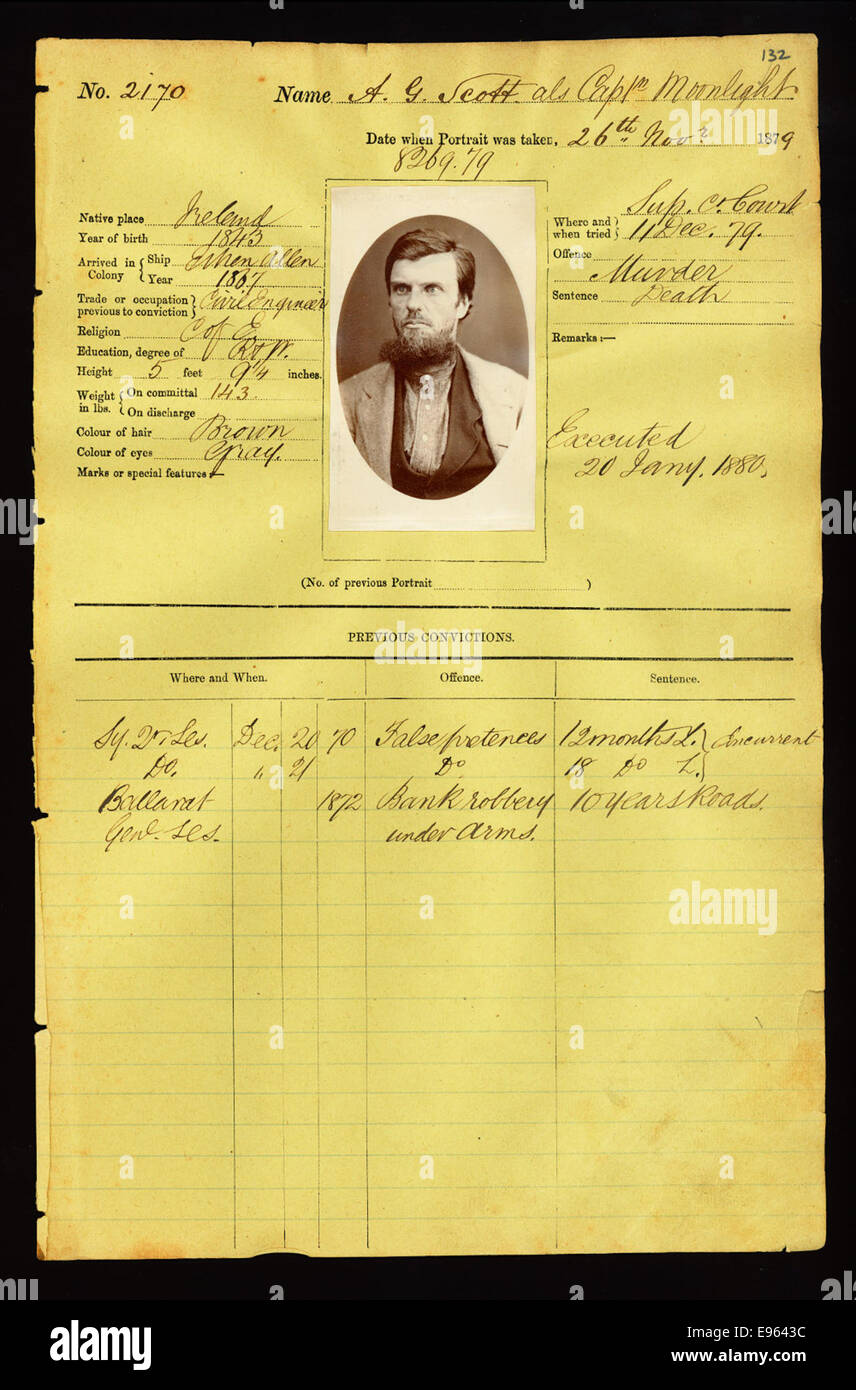 132
No. 2170 Name A. G. Scott als Captn Moonlight
Date when Portrait was taken, 26th Novr 1879
8269.79
Native place Ireland
Year of birth 1843
Arrived in Colony { Ship Ethen Allen
Year 1867
Trade or occupation previous to conviction } Civil Engineer
Religion C of E.
Education, degree of R & W.
Height 5 feet 9¼ inches.
Weight in lbs. { On committal 143
On discharge
Colour of hair Brown
Colour of eyes Gray.
Marks or special features:—
Sup. Cr. Court
Where and when tried } 11 Dec. 79.
Offence
Murder
Sentence Death
Remarks:—
Executed
20 Jany. 1880,
(No. of previous Portrait )
PREVIOUS CONVICTIONS.
Where and When. Offence. Sentence.
Sy. Qr. Ses. Dec. 20 70 False pretences 12 months L. } Concurrent
Do. " 21 Do 18 Do L. }
Ballarat 1872 Bank robbery 10 years Roads.
Genl. Ses. under arms.
alamy
alamy stock photo
E9643C
www.alamy.com